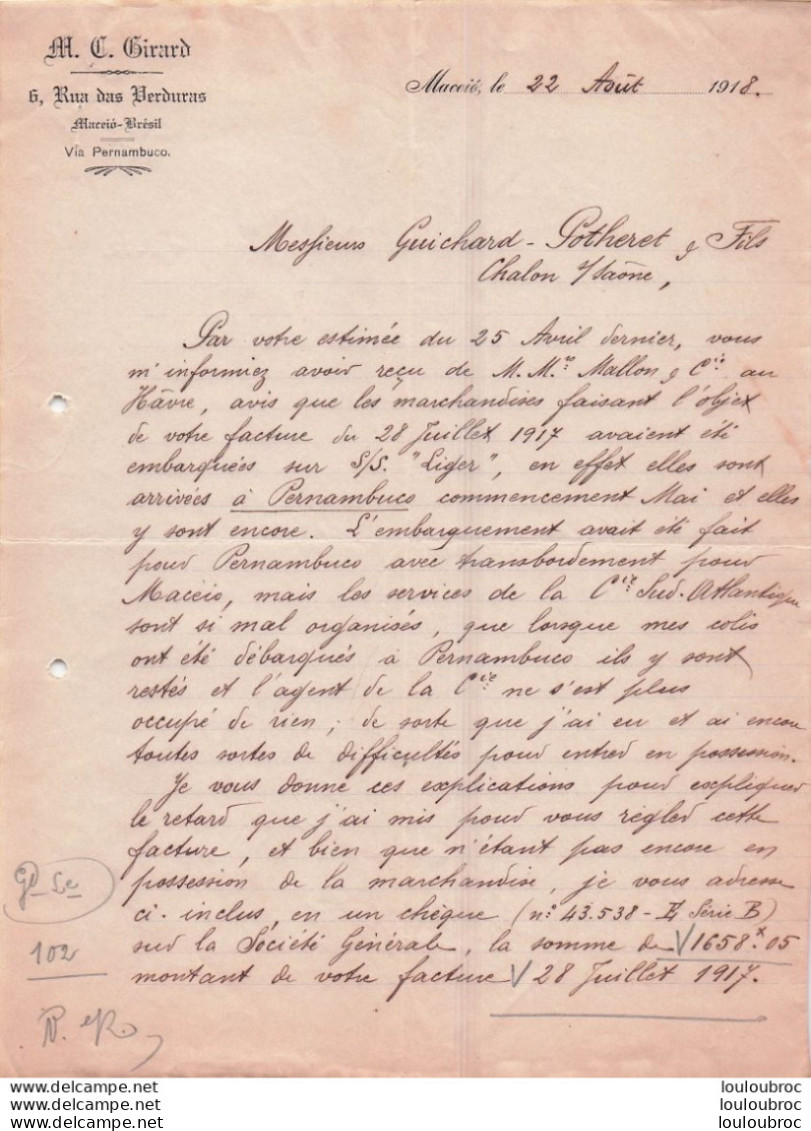 M. C. Girard
6, Rua das Verduras
Maceió-Brésil
Vía Pernambuco.
Maceió, le 22 Août 1918.
Messieurs Guichard-Potheret & Fils
Chalon s/Saône,
Par votre estimée du 25 Avril dernier, vous
m'informiez avoir reçu de M.M.rs Mallon & Cie au
Hâvre, avis que les marchandises faisant l'objet
de votre facture du 28 Juillet 1917 avaient été
embarquées sur S/S. "Liger", en effet elles sont
arrivées à Pernambuco commencement Mai et elles
y sont encore. L'embarquement avait été fait
pour Pernambuco avec transbordement pour
Maceio, mais les services de la Cie Sud-Atlantique
sont si mal organisés, que lorsque mes colis
ont été débarqués à Pernambuco ils y sont
restés et l'agent de la Cie ne s'est plus
occupé de rien; de sorte que j'ai eu et ai encore
toutes sortes de difficultés pour entrer en possession.
Je vous donne ces explications pour expliquer
le retard que j'ai mis pour vous régler cette
facture, et bien que n'étant pas encore en
possession de la marchandise, je vous adresse
ci-inclus, en un chèque (no 43.538 - Série B)
sur la Société Générale, la somme de 1658x05
montant de votre facture 28 Juillet 1917.
102
louloubroc
louloubroc
louloubroc